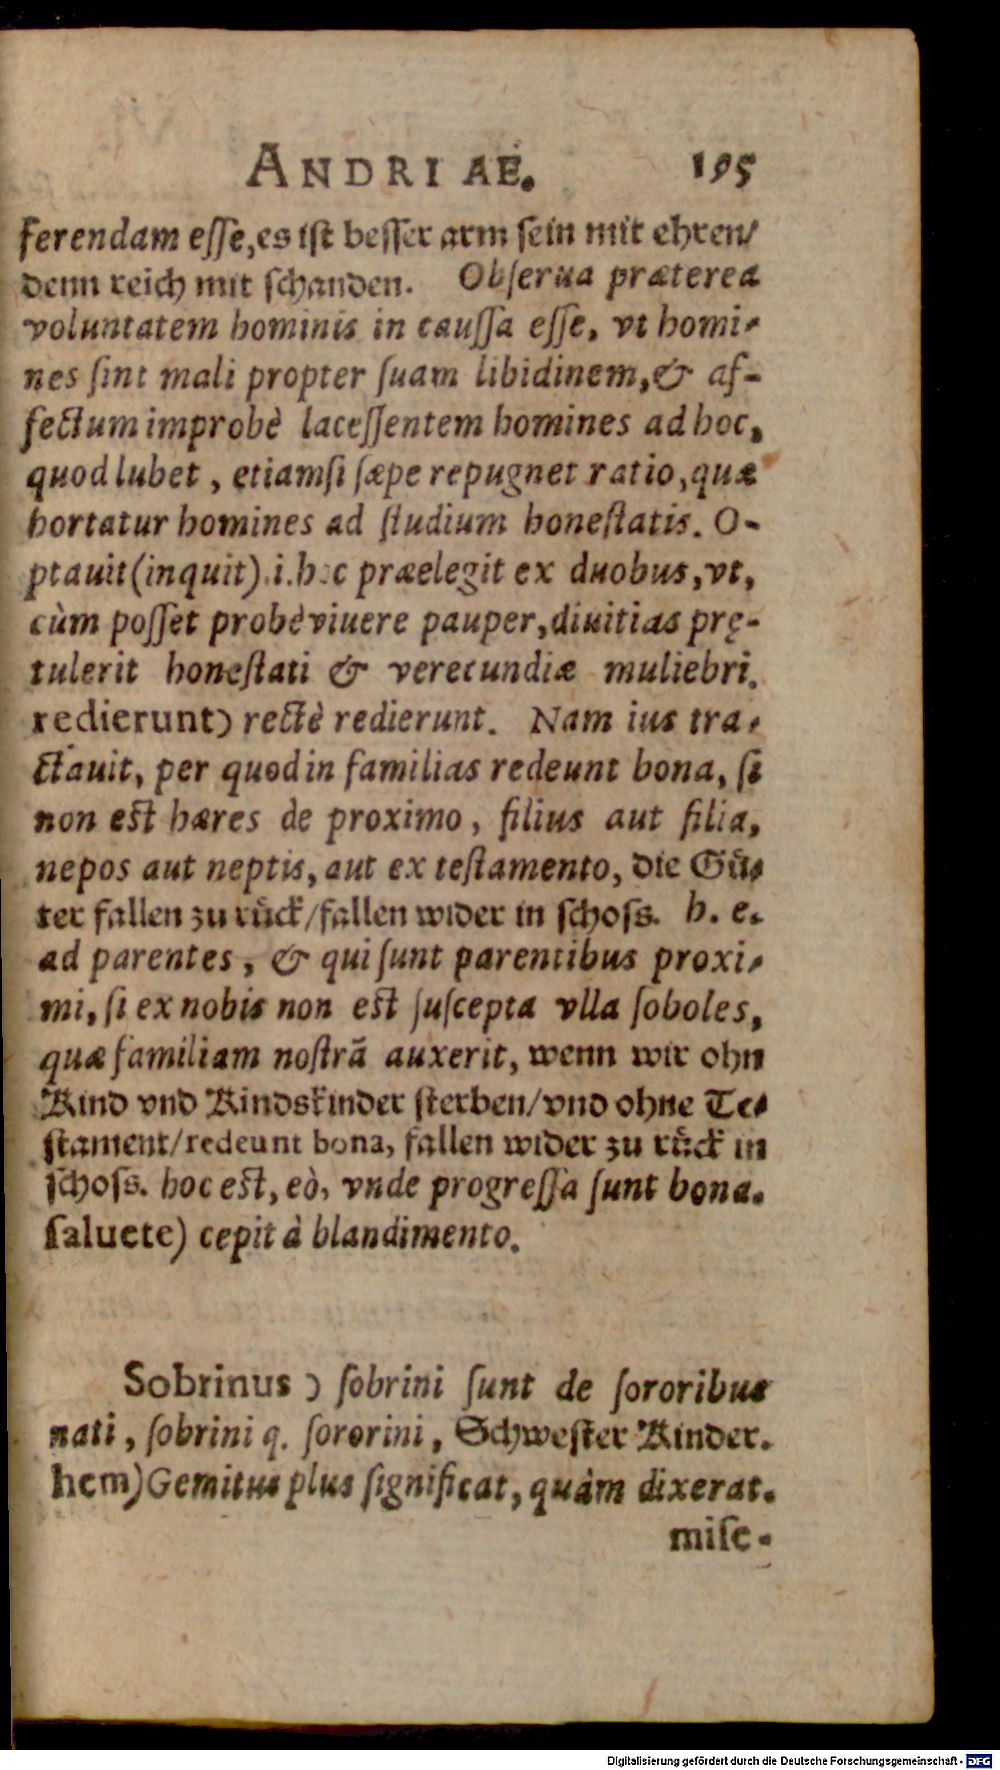 ANDRIAE. 195
ferendam eſſe, es iſt beſſer arm ſein mit ehren/
denn reich mit ſchanden. Obſerua præterea
voluntatem hominis in cauſſa eſſe, vt homi-
nes ſint mali propter ſuam libidinem, & af-
fectum improbè laceſſentem homines ad hoc,
quod lubet, etiamſi ſæpe repugnet ratio, quæ
hortatur homines ad ſtudium honeſtatis. O-
ptauit (inquit) .i. hoc præelegit ex duobus, vt,
cùm poſſet probè viuere pauper, diuitias prę-
tulerit honeſtati & verecundiæ muliebri.
redierunt) rectè redierunt. Nam ius tra-
ctauit, per quod in familias redeunt bona, ſi
non eſt hæres de proximo, filius aut filia,
nepos aut neptis, aut ex teſtamento, die Guͤ-
ter fallen zu ruͤck/fallen wider in ſchoſs. h. e.
ad parentes, & qui ſunt parentibus proxi-
mi, ſi ex nobis non eſt ſuſcepta vlla ſoboles,
quæ familiam noſtrã auxerit, wenn wir ohn
Kind vnd Kindskinder ſterben/vnd ohne Te-
ſtament/redeunt bona, fallen wider zu ruͤck in
ſchoſs. hoc eſt, eò, vnde progreſſa ſunt bona.
ſaluete) cepit à blandimento.
Sobrinus) ſobrini ſunt de ſororibus
nati, ſobrini q. ſororini, Schweſter Kinder.
hem) Gemitus plus ſignificat, quàm dixerat.
miſe-
Digitalisierung gefördert durch die Deutsche Forschungsgemeinschaft - DFG